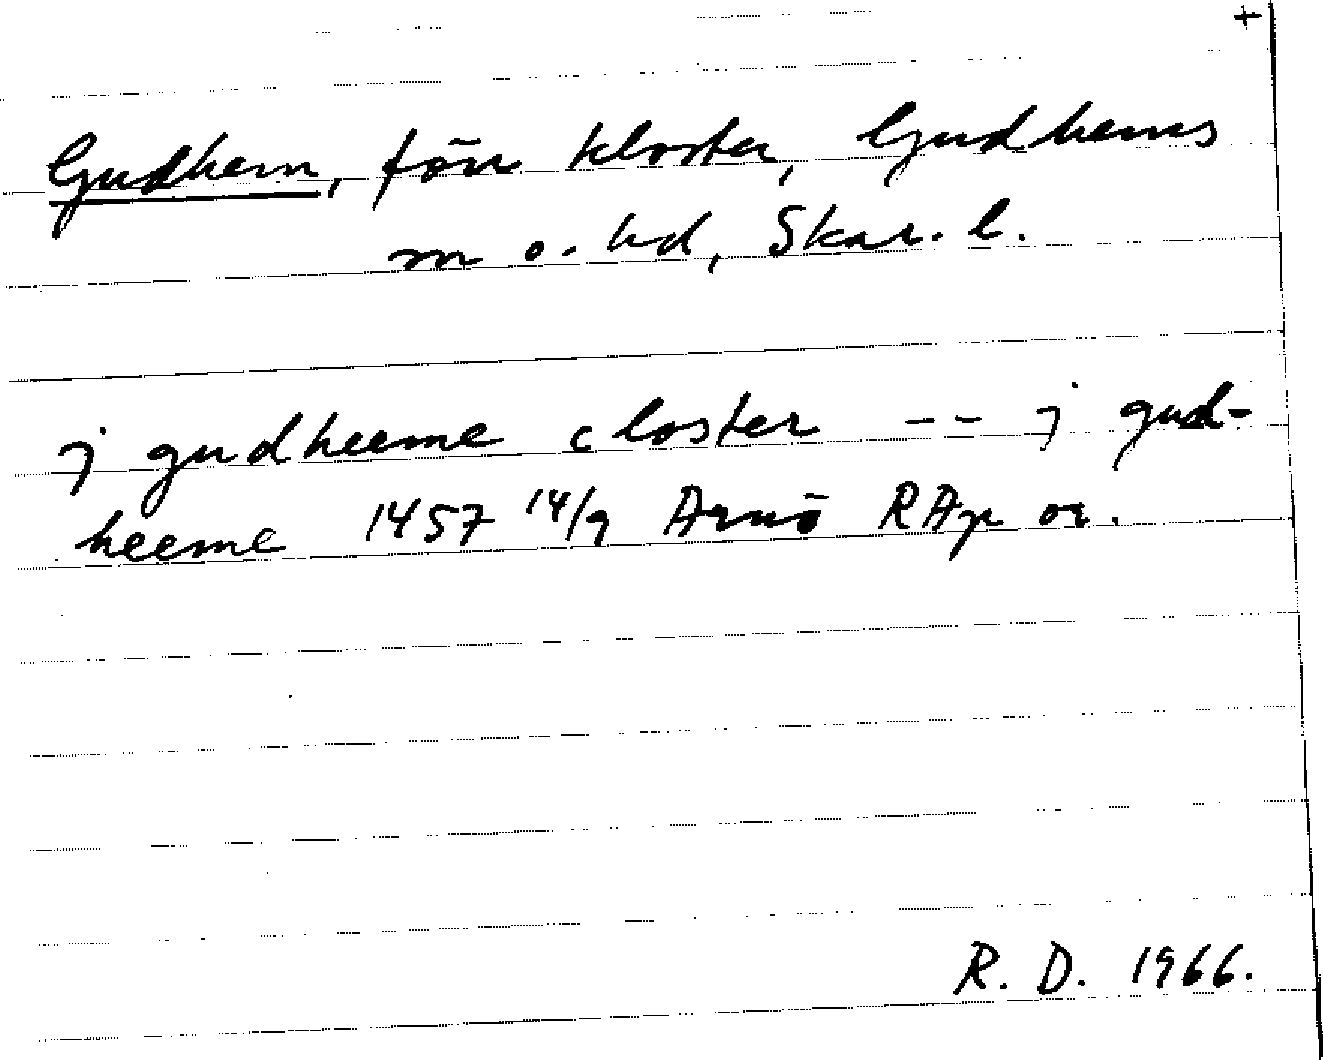 +
Gudhem, förr kloster, Gudhems
sn o. hd, Skar. l.
j gudheeme closter -- j gud-
heeme 1457 14/9 Arnö RAp or.
R. D. 1966.